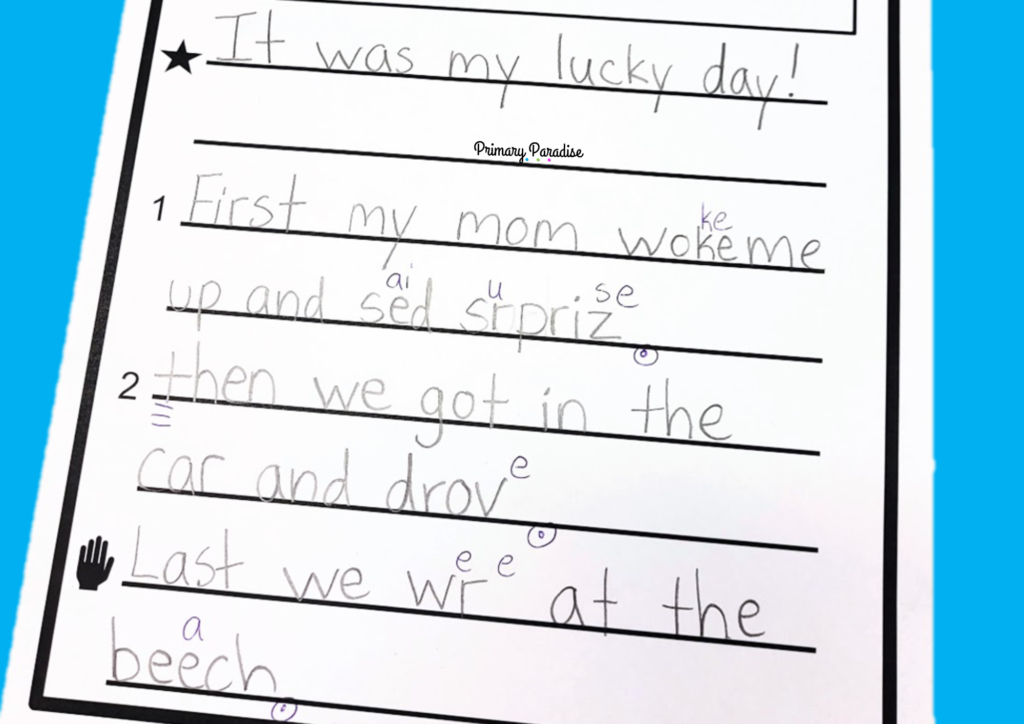 It was my lucky day!
Primary Paradise
1 First my mom woke me
ke
up and sed srpriz
ai u se
2 then we got in the
car and drov e
Last we wr at the
e e
beech
a